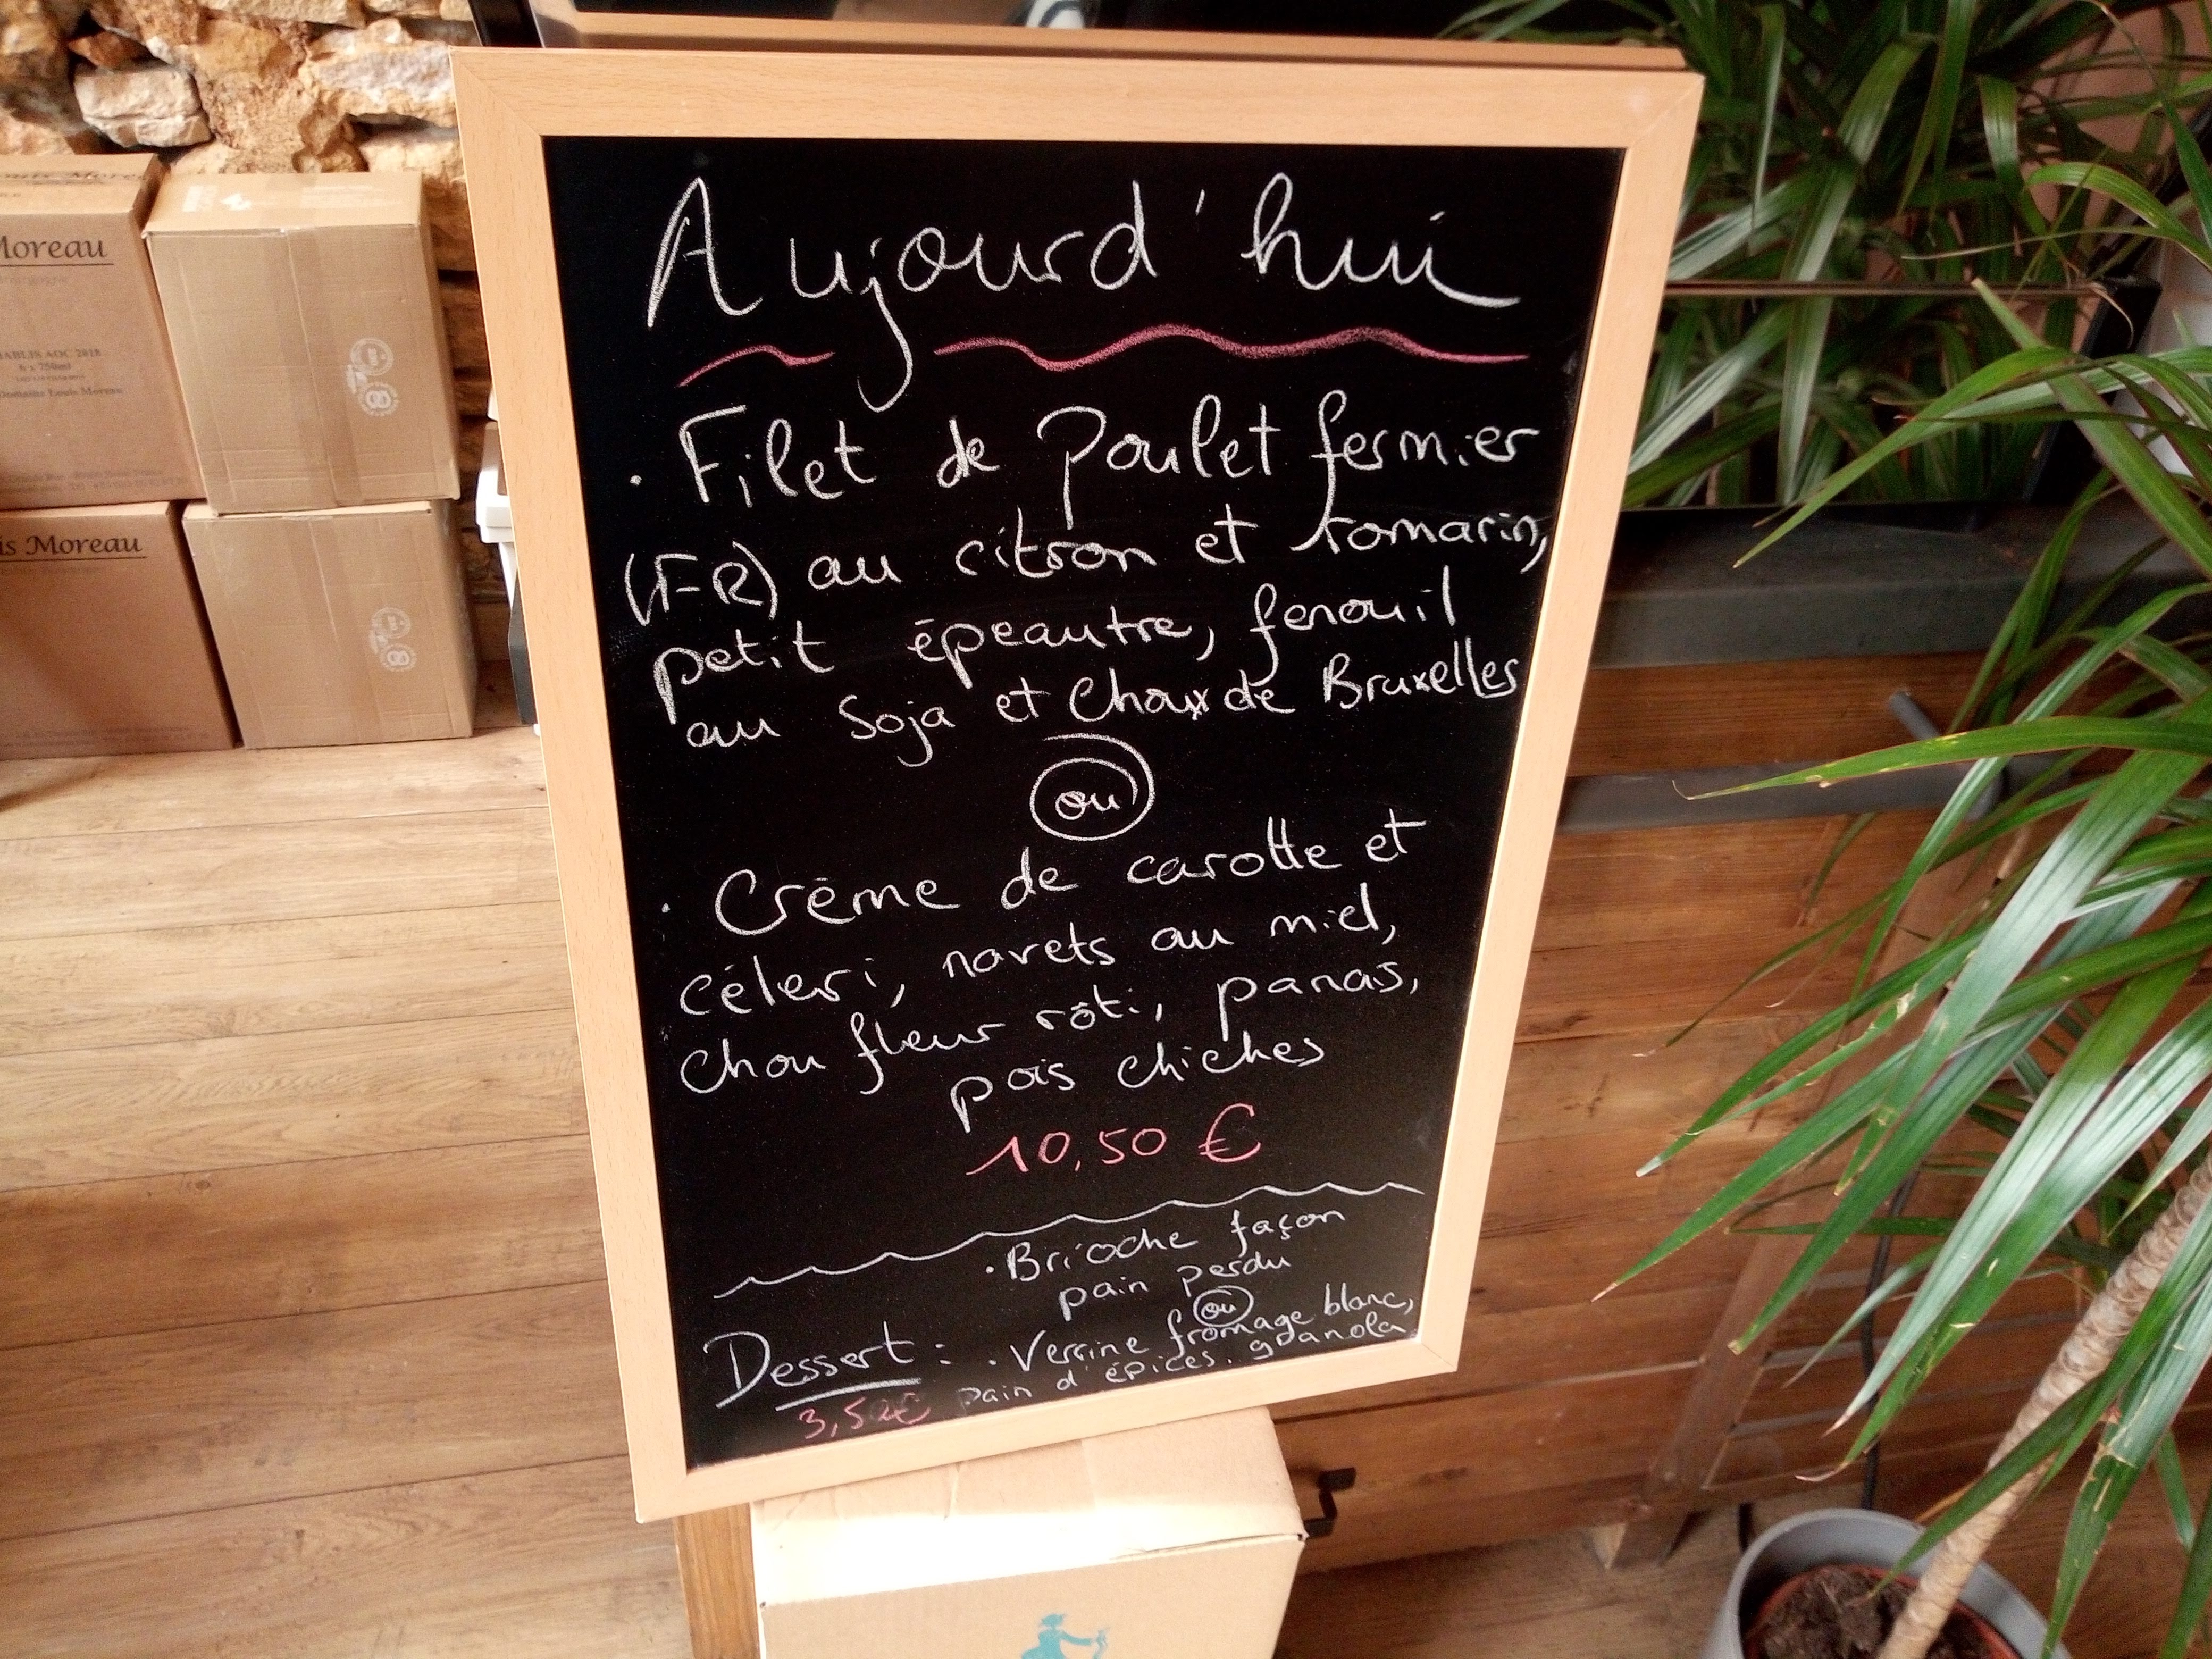 Aujourd'hui
· Filet de Poulet fermier
(FR) au citron et romarin,
petit épeautre, fenouil
au Soja et Choux de Bruxelles
ou
· Crème de carotte et
céleri, navets au miel,
chou fleur rôti, panais,
pois chiches
10,50 €
· Brioche façon
pain perdu
ou
Dessert : · Verrine fromage blanc,
pain d'épices, granola
3,50€
Moreau
HABLIS AOC 2018
6 x 750ml
Domaine Louis Moreau
is Moreau